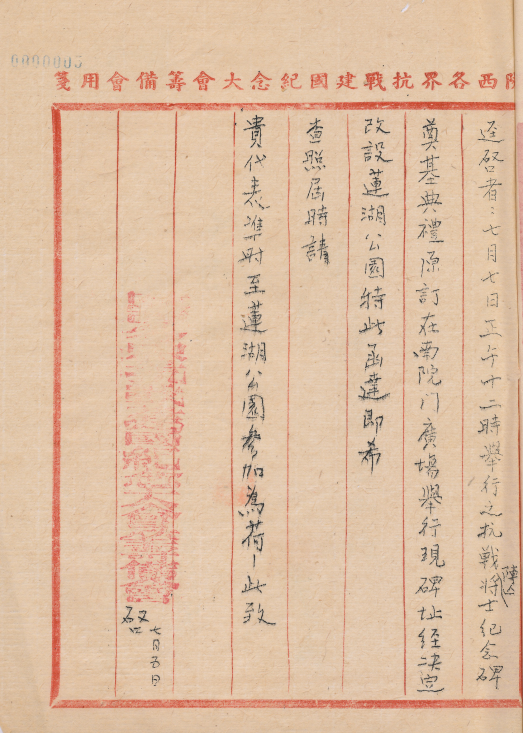 0000005
陝西各界抗戰建國紀念大會籌備會用箋
逕啓者：七月七日正午十二時舉行之抗戰陣亡將士紀念碑
奠基典禮原訂在南院门廣場舉行現碑址經决定
改設蓮湖公園特此函達即希
查照屆時請
貴代表準时至蓮湖公園參加為荷！此致
紀念大會籌備會
啟
七月五日